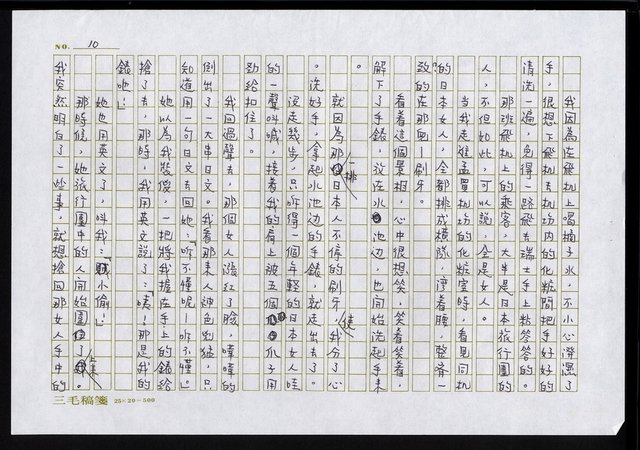 NO. 10
我因為在飛机上喝橘子水，不小心滑濕了
手，很想下飛机去机坊内的化粧間把手好好的
清洗一遍，免得一路飛去瑞士手上粘答答的。
那班飛机上的乘客，大半是日本旅行團的
人，不但如此，可以說，全是女人。
當我走進孟買机坊的化粧室時，看見同机
的日本女人，全都排成橫隊，灣着腰，整齊一
致的在那兒刷牙。
看着這個景相，心中很想笑，笑着笑着，
解下了手錶，放在水池边，也開始洗起手來
。
就因為那一排日本人不停的刷牙，我分了心
。洗好手，拿起水池边的手錶，就走出去了。
沒走幾步，只听得一個年輕的日本女人哇
的一聲叫喊，接着我的肩上被五個爪子用
勁給扣住了。
我回過聲去，那個女人漲紅了臉，嘩嘩的
倒出了一大串日文。我看那來人神色兇猛，只
知道用一句日文去回她：「听不懂呢！听不懂。」
她以為我裝傻，一把將我握在手上的錶給
搶了去，那時，我用英文說了：「咦！那是我的
錶吔！」
她也用英文了，叫我：「賊小偷！」
那時候，她旅行團中的人開始圍上來了。
我突然明白了一些事，就想搶回那女人手中的
三毛稿箋 25×20=500